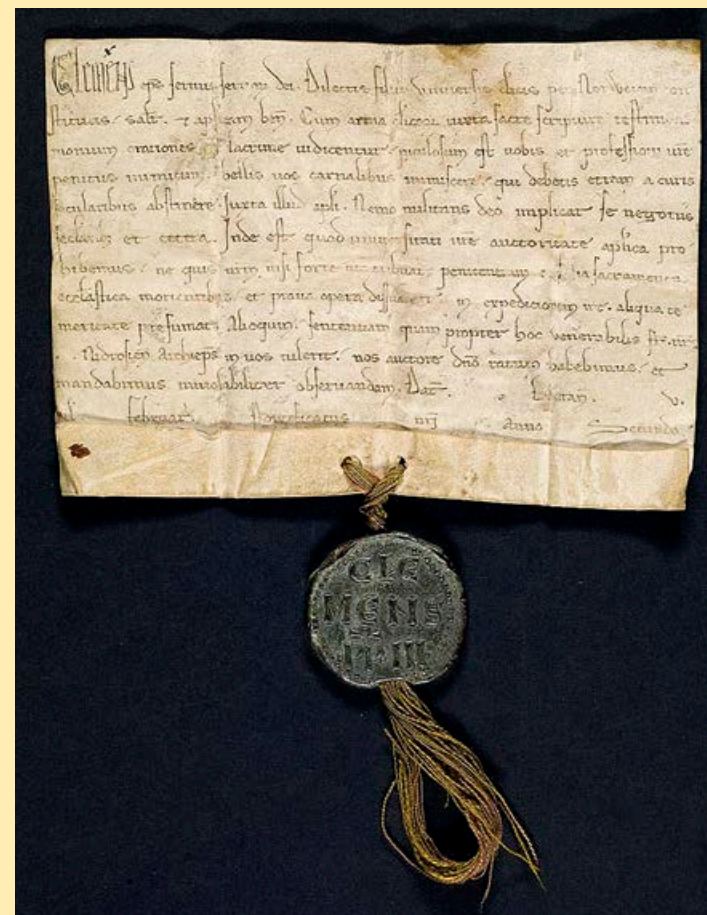 Clemens eps seruus seruor dei. Dilectis filiis uniuersis clicis per Norweiam con
stitutis. salt. et aplicam ben. Cum arma clicor iuxta sacre scripture testimo
monium orationes et lacrime iudicentur. piculosum est uobis et professioni ure
penitus inimicum. bellis uos carnalibus inmiscere. qui debetis etiam a curis
secularibus abstinere. Iuxta illud apli. Nemo militans deo implicat se negotiis
seclarib et cetera. Inde est quod uniuersitati ure auctoritate aplica pro
hibemus. ne quis urm nisi forte ut tribuat penitentiam et alia sacramenta
ecclastica morientibus. et praua opera dissuadeat. in expedicionem ire. aliqua te
meritate presumat. Alioquin. sententiam quam propter hoc uenerabilis fr. ur
. . Nidrosien Archieps in uos tulerit. nos auctore dno ratam habebimus. et
mandabimus inuiolabiliter obseruandam. Dat. Lateran. V.
kl februar. Pontificatus nri Anno Secundo
CLE
MENS
PP III